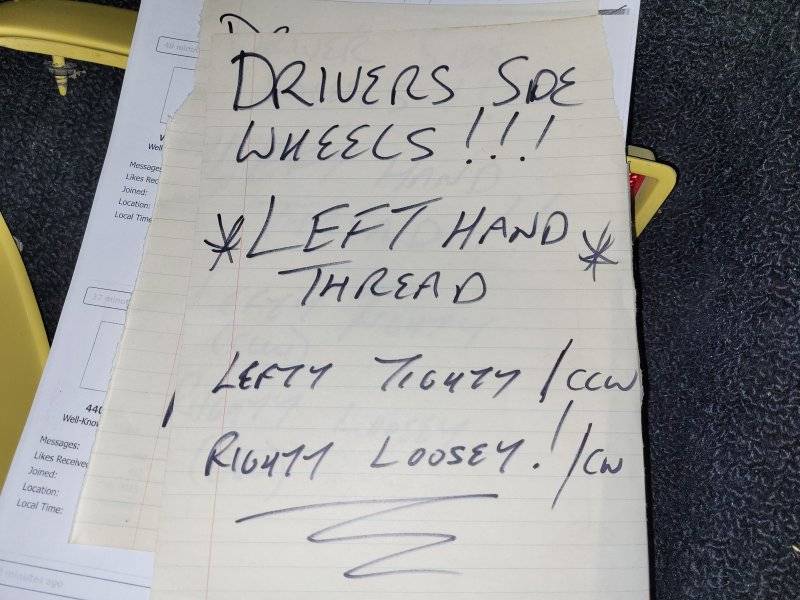 DRIVERS SIDE
WHEELS!!!
*LEFT HAND*
THREAD
LEFTY TIGHTY /CCW
RIGHTY LOOSEY! /CW
Messages:
Likes Rec
Joined:
Location:
Local Time:
17 minut
440
Well-Know
Messages:
Likes Received
Joined:
Location:
Local Time:
minutes ago